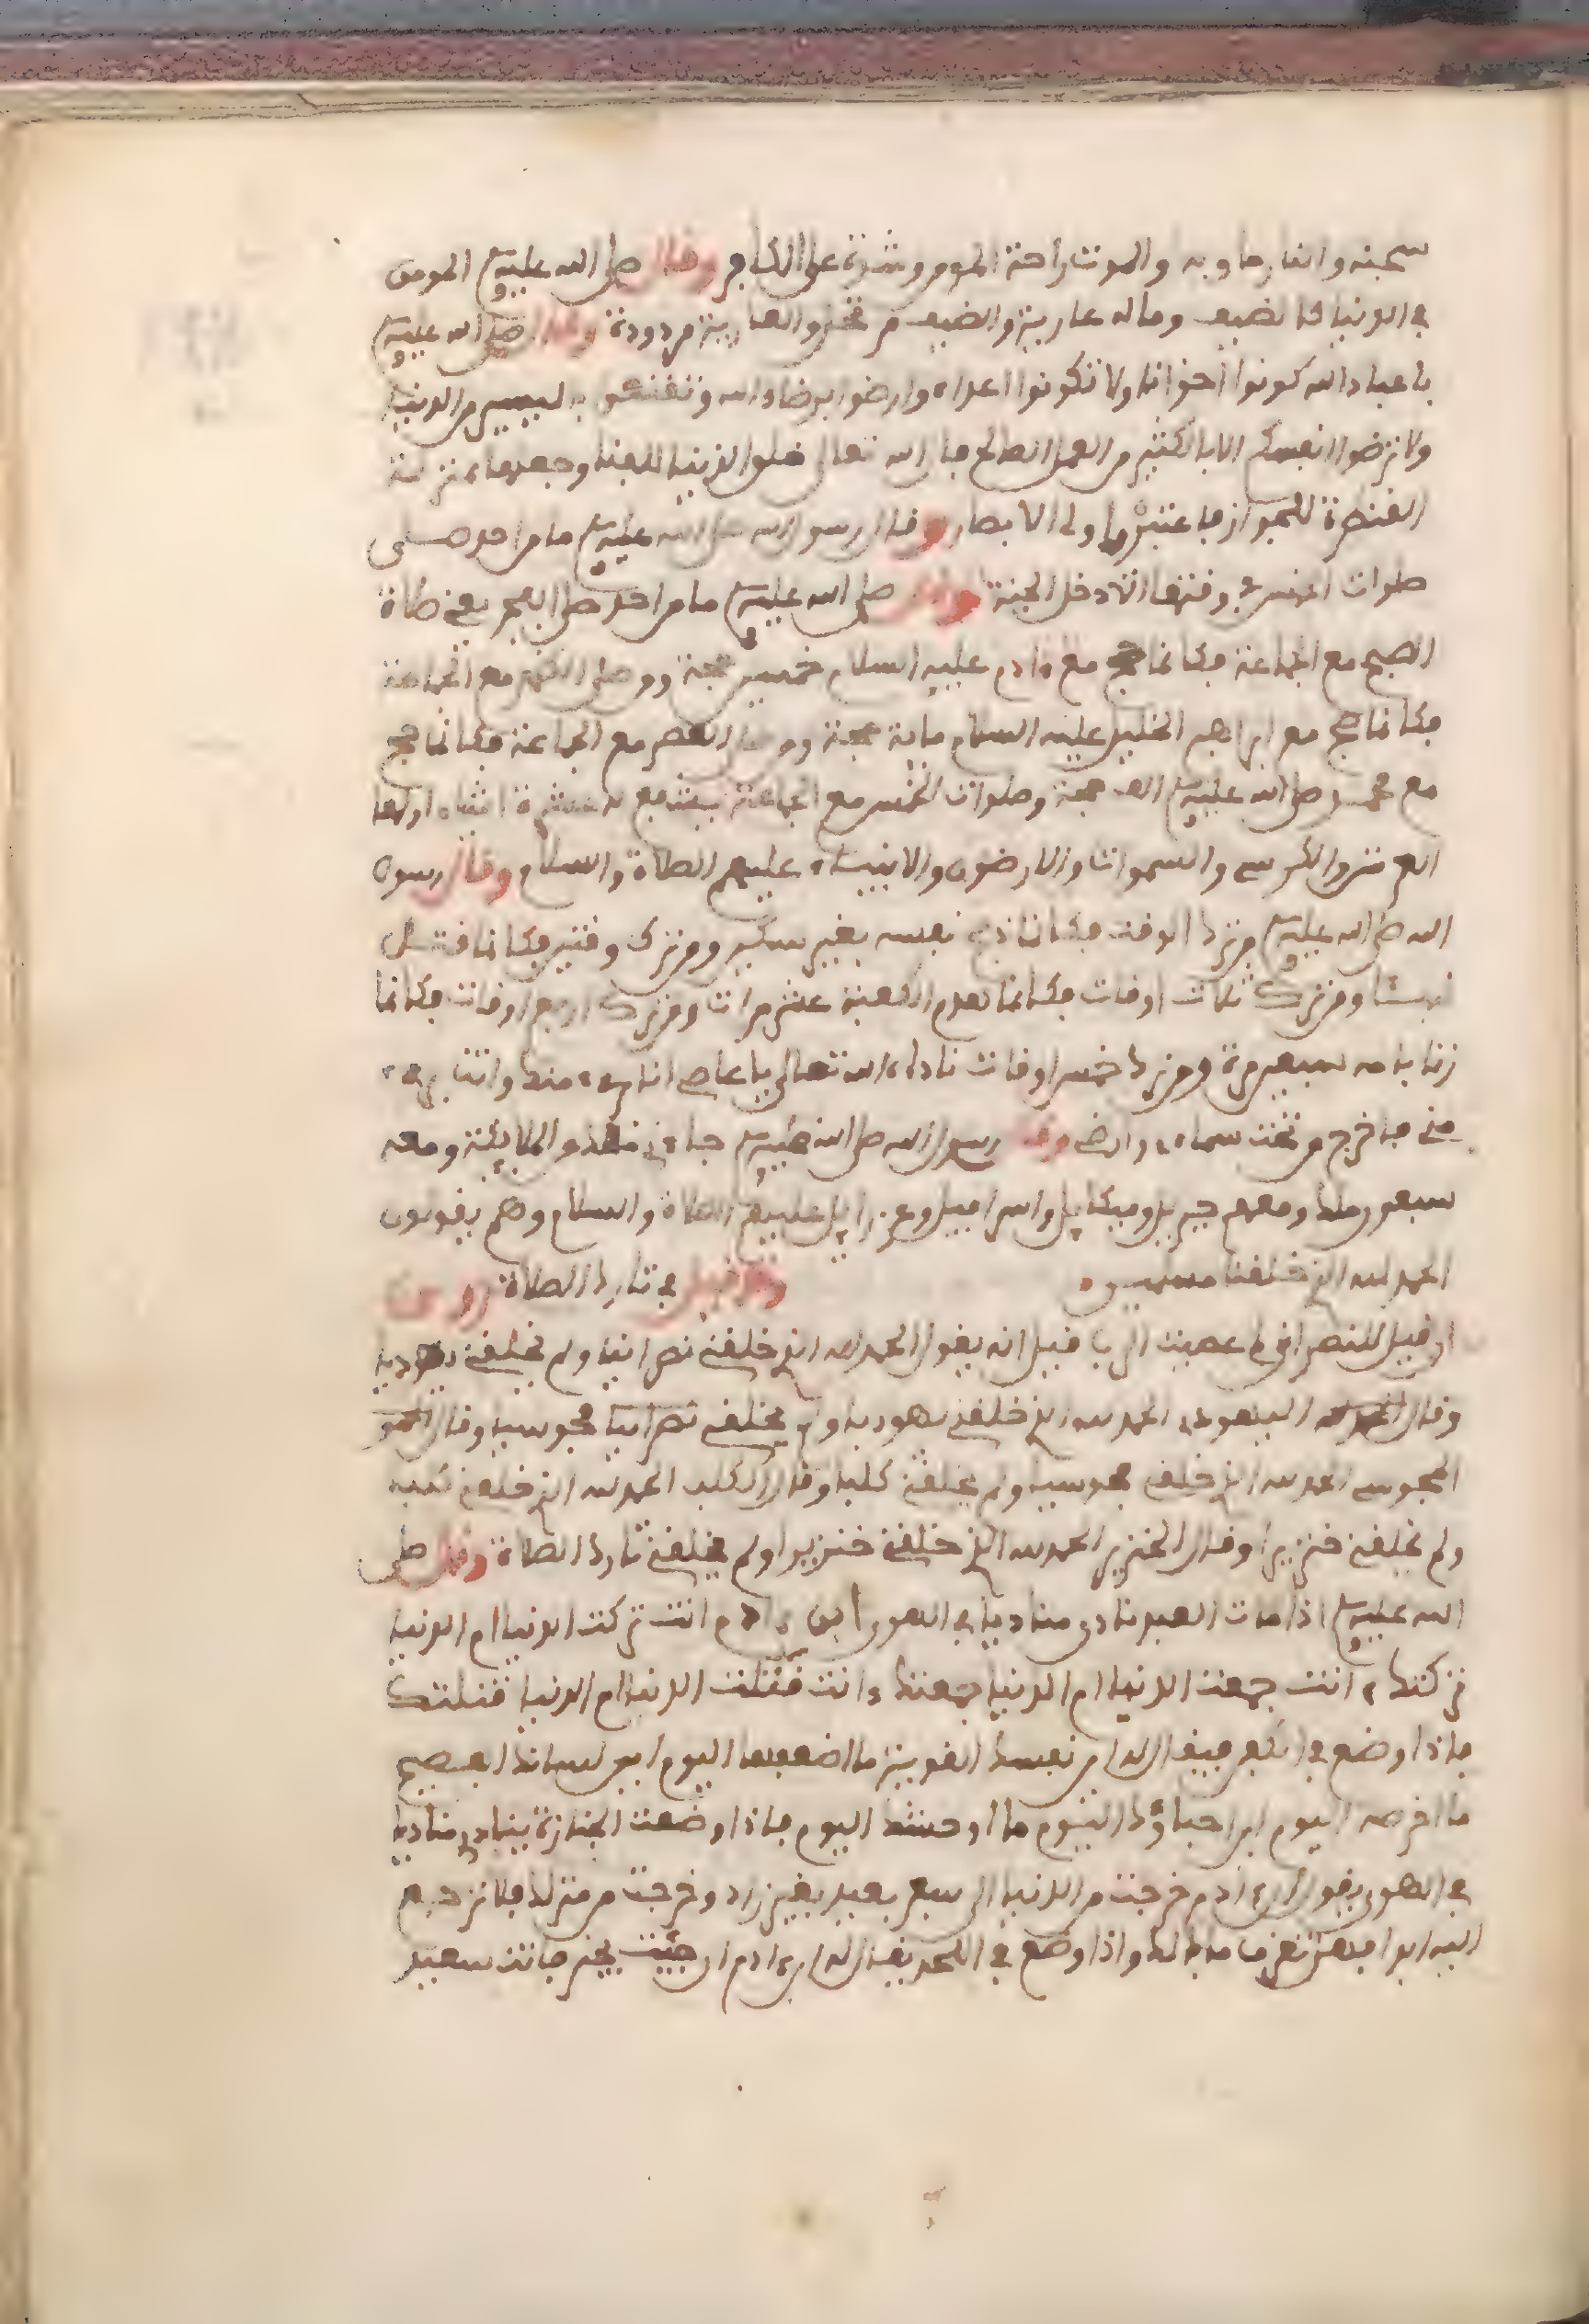 سجنه والنار ماويه والموت راحة المومن وشدة على الكافر وقال صلى الله عليه وسلم المومن
في الدنيا كالضيف وماله عارية والضيف مرتحل والعارية مردودة وقال صلى الله عليه وسلم
يا عباد الله كونوا اخوانا ولا تكونوا اعداء وارضوا برضاء الله وتقنعوا باليسير من الدنيا
ولا ترضوا انفسكم الا بالكثير من العمل الصالح فان الله تعالى خلق الدنيا للفنا وجعلها منزلة
القنطرة للجواز فاعتبروا يا ولي الابصار وقال رسول الله صلى الله عليه وسلم ما من احد صلى
صلوات الخمس في وقتها الا دخل الجنة وقال صلى الله عليه وسلم ما من احد صلى الفجر يعني صلاة
الصبح مع الجماعة فكانما حج مع ءادم عليه السلام خمسين حجة ومن صلى الظهر مع الجماعة
فكانما حج مع ابراهيم الخليل عليه السلام ماية حجة ومن صلى العصر مع الجماعة فكانما حج
مع محمد صلى الله عليه وسلم الف حجة وصلوات الخمس مع الجماعة يشفع له عشرة اشياء اولها
العرش والكرسي والسموات والارضون والانبياء عليهم الصلاة والسلام وقال رسول
الله صلى الله عليه وسلم من ترك الوقت فكانما ذبح نفسه بغير سكين ومن ترك وقتين فكانما قتل
نبيئا ومن ترك ثلاث اوقات فكانما هدم الكعبة عشر مرات ومن ترك اربع اوقات فكانما
زنا بامه سبعين مرة ومن ترك خمس اوقات ناداه الله تعالى يا عاصي انا بريء منك وانت بريء
مني فاخرج من تحت سماءي وارضي وقال رسول الله صلى الله عليه وسلم جاءني ملك من الملايكة ومعه
سبعون ملكا ومعهم جبريل وميكاييل واسرافيل وعزراييل عليهم الصلاة والسلام وهم يقولون
الحمد لله الذي خلقنا مسلمين وقد قيل في تارك الصلاة
ان قيل للنصراني لم عصيت الرب قيل انه يقول الحمد لله الذي خلقني نصرانيا ولم يخلقني يهوديا
وقال اليهودي الحمد لله الذي خلقني يهوديا ولم يخلقني نصرانيا مجوسيا وقال المجو
المجوسي الحمد لله الذي خلقني مجوسيا ولم يخلقني كلبا وقال الكلب الحمد لله الذي خلقني كلبا
ولم يخلقني خنزيرا وقال الخنزير الحمد لله الذي خلقني خنزيرا ولم يخلقني تارك الصلاة وقال صلى
الله عليه وسلم اذا مات العبد نادى مناديا في الهوى ابن ءادم انت تركت الدنيا ام الدنيا
تركتك انت جمعت الدنيا ام الدنيا جمعتك انت قتلت الدنيا ام الدنيا قتلتك
فاذا وضع في الكفن فيقال له اين نفسك القوية ما اضعفها اليوم اين لسانك الفصيح
ما اخرصه اليوم اين احباؤك اليوم ما اوحشك اليوم فاذا وضعت الجنازة ينادي مناديا
في الهوى يقول ابن ءادم خرجت من الدنيا الى سفر بعيد بغير زاد وخرجت من منزلك فلا ترجع
اليه ابدا واذا وضع في اللحد يقال له ابن ءادم ان جئت بخير فانت سعيد